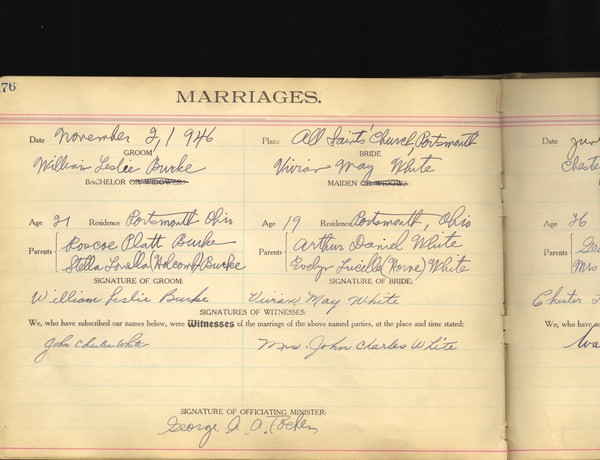 76
MARRIAGES.
Date November 2, 1946 Place All Saints' Church, Portsmouth
GROOM BRIDE
William Leslie Burke Vivian May White
BACHELOR OR WIDOWER: MAIDEN OR WIDOW:
Age 21 Residence Portsmouth Ohio Age 19 Residence Portsmouth, Ohio
Parents Roscoe Platt Burke Parents Arthur Daniel White
Stella Louella (Holcomb) Burke Evelyn Lucille (Horne) White
SIGNATURE OF GROOM: SIGNATURE OF BRIDE:
William Leslie Burke Vivian May White
SIGNATURES OF WITNESSES:
We, who have subscribed our names below, were Witnesses of the marriage of the above named parties, at the place and time stated:
John Charles White Mrs. John Charles White
SIGNATURE OF OFFICIATING MINISTER:
George
Date
Age 26
Parents
Mrs
We, who have